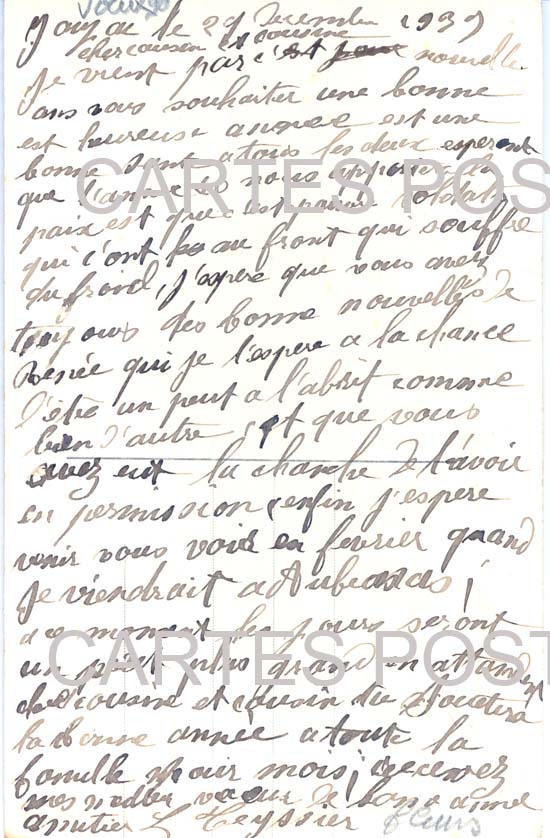 Voeux
le 29 Decembre 1939
cher cousin et cousine
Je vient par c'est nouvelle
vous souhaiter une bonne
est heureuse année est une
bonne a tous les deux esperent
que l'année nous apporte la
paix est que c'est pauvre soldats
qui c'ont au front qui souffre
du froid, j'espere que vous avez
toujours des bonne nouvelles de
Renée qui je l'espere a la chance
d'être un peut a l'abrit comme
bien d'autre, et que vous
avez eut la chanche de l'avoir
en permission, enfin j'espere
venir vous voir en fevrier quand
Je viendrait a Aubenas,
a ce moment les jours seront
un peut plus grand en attendent
cousine et cousin tu
la bonne année a toute la
famille pour mois, recevez
mes de bonne année
amitier L Teyssier
fleurs
CARTES POST
CARTES POST